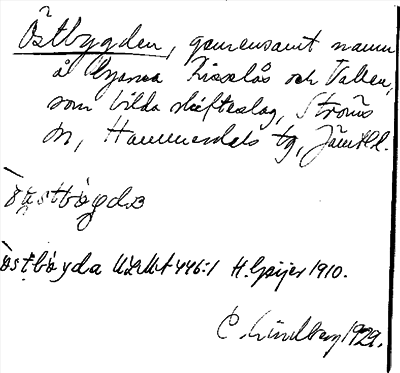 Östbygden, gemensamt namn
å byarna Kisselås och Vallen,
som bilda skifteslag, Ströms
sn, Hammerdals tg, Jämtl.
östbögda
östböyda ULMA 446:1 H. Geijer 1910.
C. Lindberg 1929.